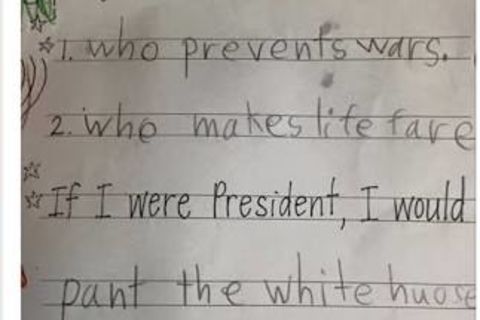 1. who prevents wars.
2. who makes life fare
If I were President, I would
pant the white huose